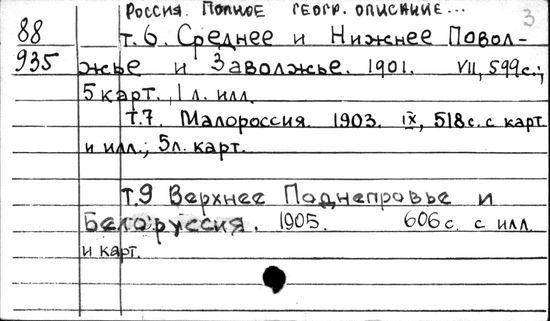 Россия. Полное геогр. описание... 3
88 т.6. Среднее и Нижнее Повол-
935 жье и Заволжье. 1901. VII, 599с.;
5 карт., 1 л. илл.
т.7. Малороссия. 1903. IX, 518с. с карт
и илл.; 5л. карт.
т.9 Верхнее Поднепровье и
Белоруссия. 1905. 606с. с илл.
и карт.